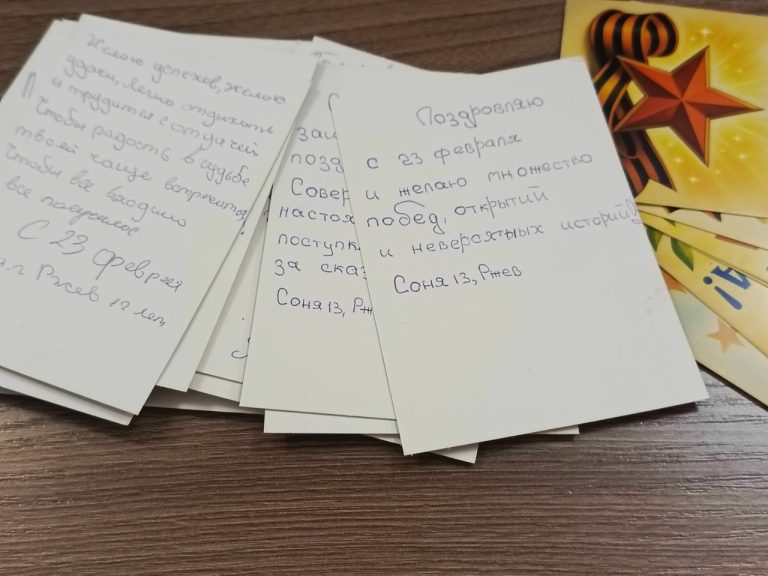 Желаю успехов, желаю
удачи, легко отдыхать
и трудится с отдачей
Чтобы радость в судьбе
твоей чаще встречится
Чтобы все входило
все получалос.
С 23 Февраля
г. Ржев 12 лет
заи
позд
Совер
настоя
поступк
за сказ
Соня 13, Рж
Поздровляю
с 23 февраля
и желаю множество
побед, открытий
и невероятных историй!
Соня 13, Ржев
а!